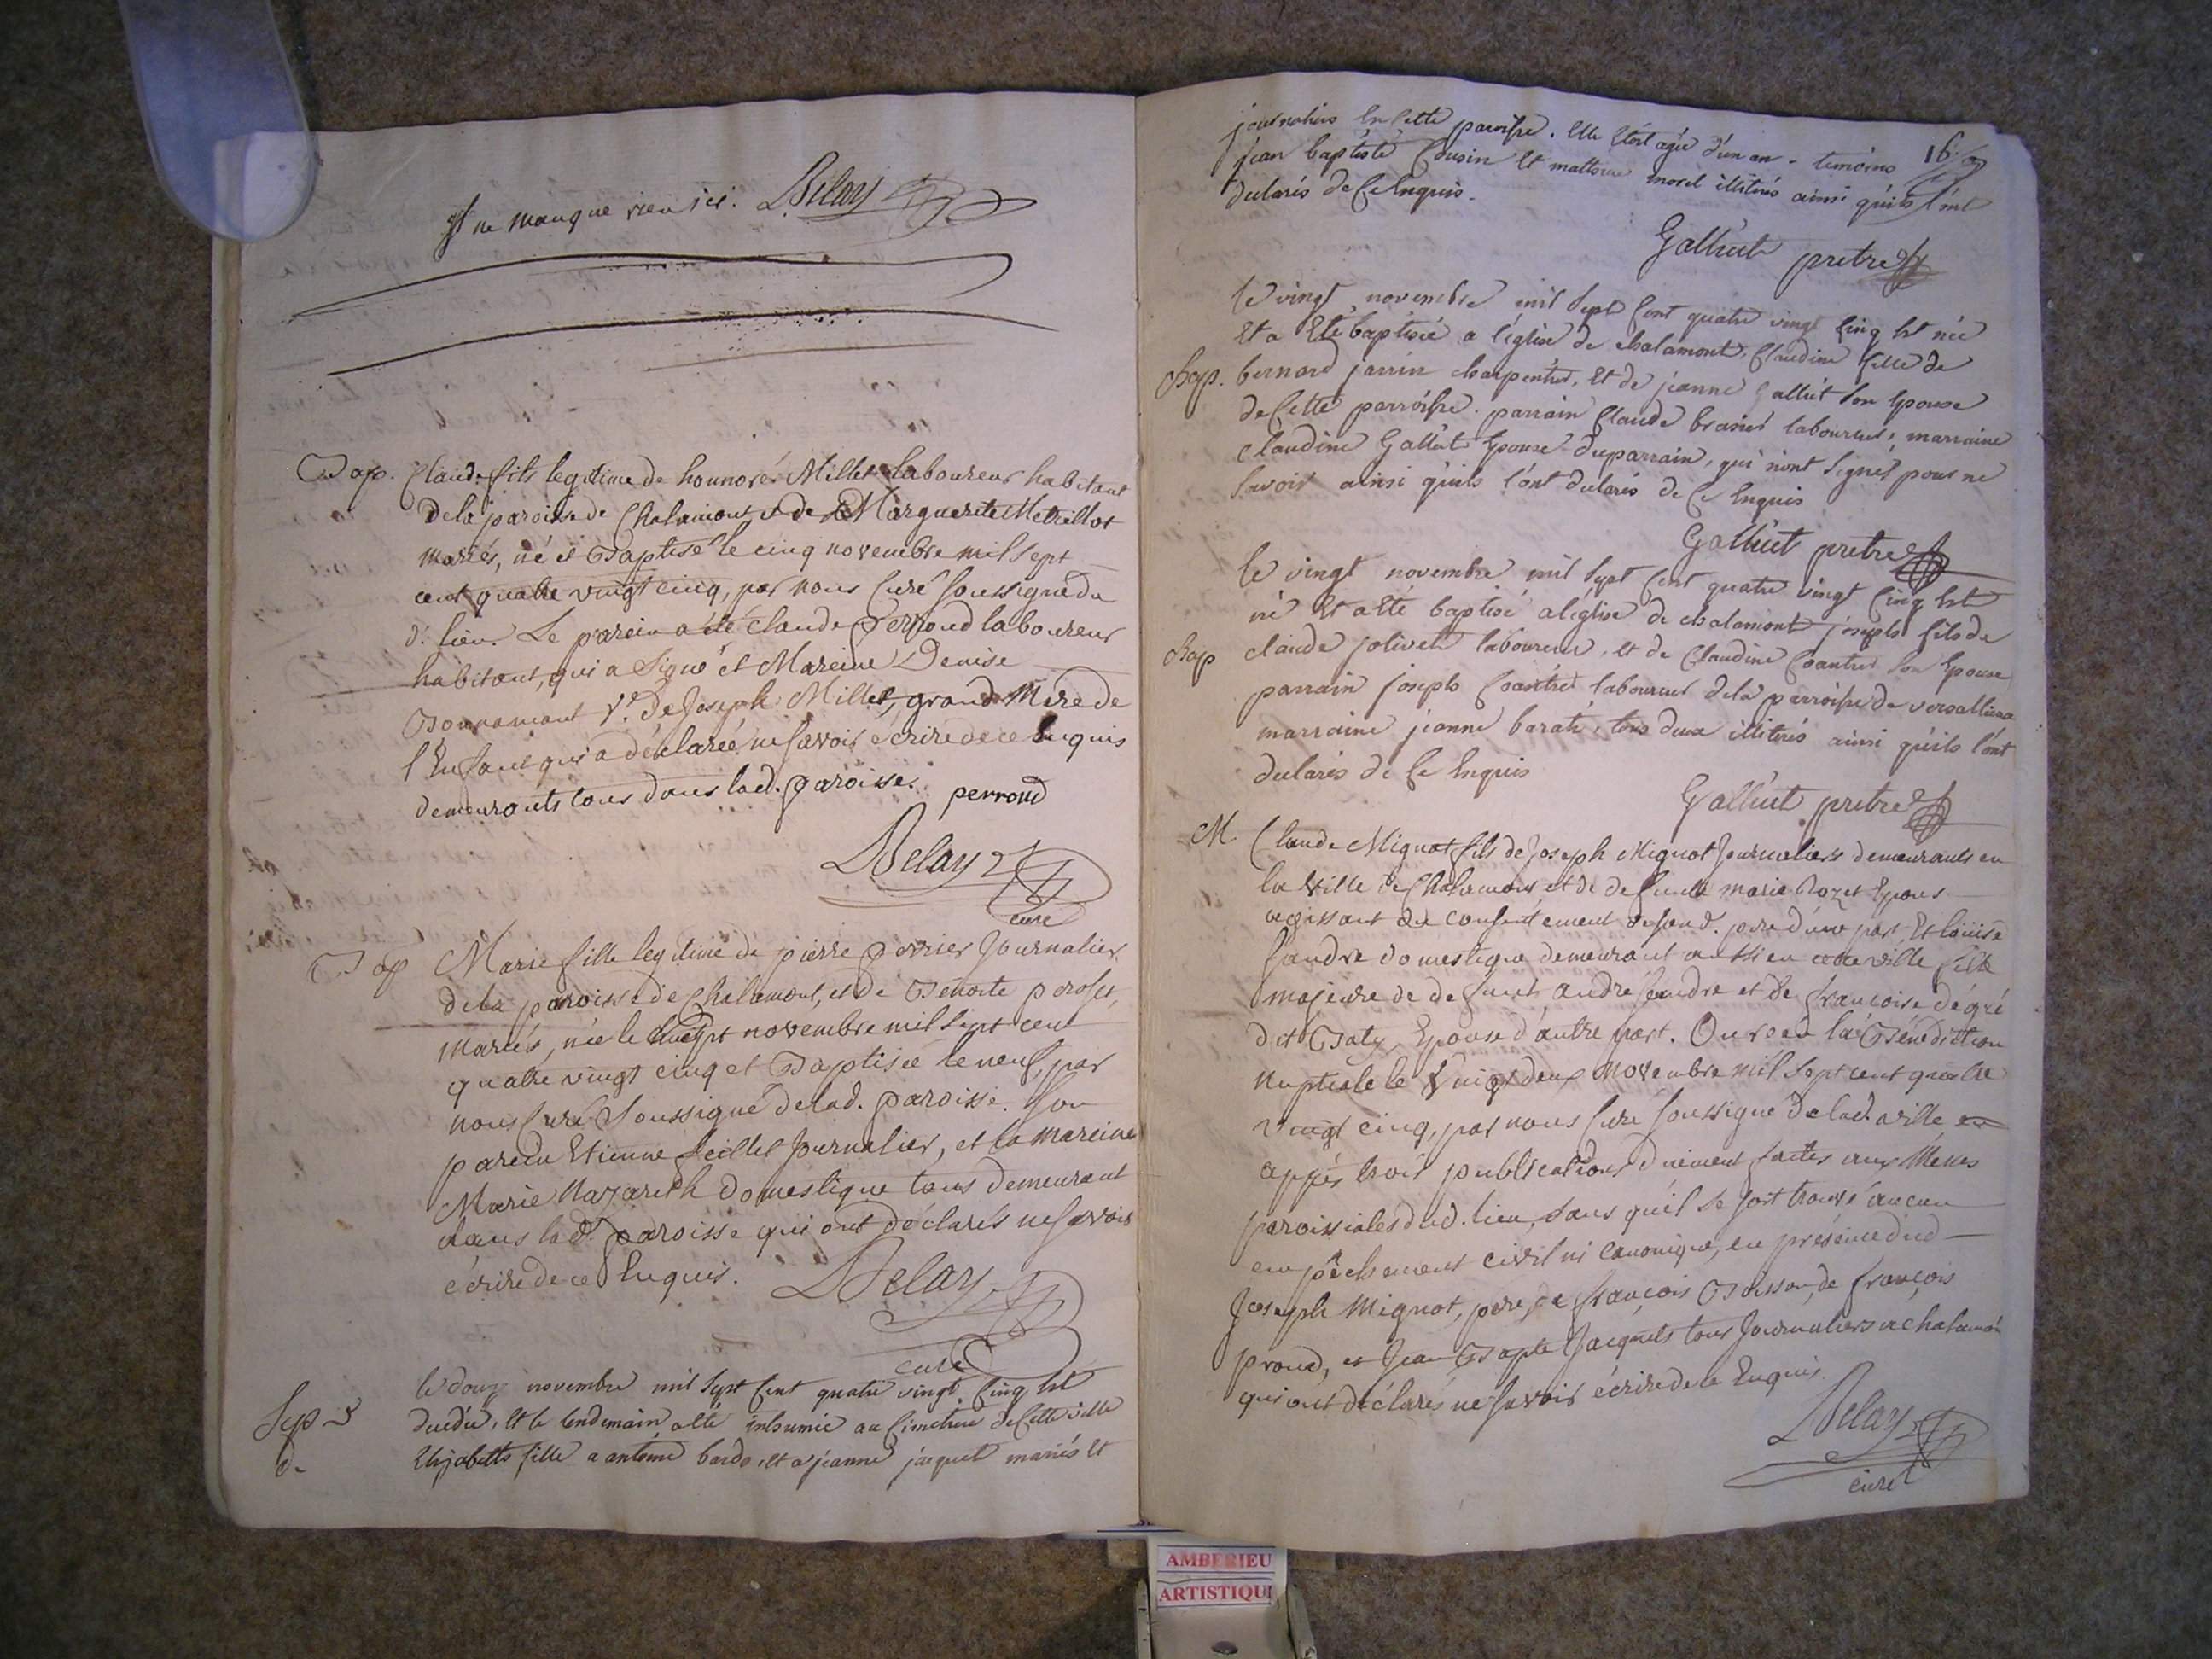 Il ne manque rien ici. Delay
Bap. Claude fils legitime de honnoré Millet laboureur habitant
de la paroisse de Chalamont et de Marguerite Metrillot
mariés, né et Baptisé le cinq novembre mil sept
cent quatre vingt cinq, par nous Curé soussigné du
d. lieu. Le parein a été claude perroud laboureur
habitant, qui a Signé et Mareine Denise
Ve. de Joseph Millet, grand Mere de
l'Enfant qui a déclarée ne savoir écrire de ce Enquis
demeurants tous dans lad. paroisse. perroud
Delay
curé
Bap Marie fille legitime de pierre perrier Journalier
de la paroisse de Chalamont, et de Benoite
mariés, née le novembre mil sept cent
quatre vingt cinq et Baptisée le neuf, par
nous Curé Soussigné de lad. paroisse. Son
parein Etienne feillet Journalier, et la mareine
Marie Nazareth domestique tous demeurant
dans lad. paroisse qui ont déclarés ne savoir
écrire de ce Enquis. Delay
curé
Sep 3 le douze novembre mil sept cent quatre vingt cinq est
et le lendemain a été inhumée au Cimetiere de Cette ville
d. Elizabeth fille a antoine bardo, et a jeanne jaquet mariés et
16
journaliers en cette paroisse. elle étoit agée d'un an. temoins
jean baptiste Cousin et morel illiterés ainsi qu'ils l'ont
declarés de Ce Enquis.
Galliut pretre
le vingt novembre mil sept cent quatre vingt cinq est née
et a eté baptisée a l'église de chalamont, Claudine fille de
Bap. bernard janin charpentier, et de jeanne Galliut son epouse
de Cette parroisse. parrain Claude laboureur, marraine
claudine Galliut epouse du parrain, qui n'ont signés pour ne
savoir ainsi qu'ils l'ont declarés de Ce Enquis
Galliut pretre
le vingt novembre mil sept cent quatre vingt cinq est
né et a eté baptisé a l'église de chalamont joseph fils de
Bap claude jolivet laboureur, et de Claudine son epouse
parrain joseph laboureur de la parroisse de versallieux
marraine jeanne barat, tous deux illiterés ainsi qu'ils l'ont
declarés de Ce Enquis
Galliut pretre
M. Claude Mignot fils de Joseph Mignot Journaliers demeurants en
la ville de Chalamont, et de defunte marie Epoux
agissant du consentement de sond. pere d'une part Et Louise
Sandre domestique demeurant aussi en cette ville fille
majeure de defunt andré Sandre et de francoise degré
dit Baty Epouse d'autre part. Ont reçu la Bénédiction
Nuptiale le vingt deux Novembre mil sept cent quatre
vingt cinq, par nous Curé soussigné de lad. ville
après trois publications duëment faites aux Messes
paroissiales dud. lieu, sans qu'il se soit trouvé aucun
empêchement civil ni canonique, en présence dud
Joseph Mignot, pere, de françois Boisson, de françois
proud, et Jean Bapte Jacquet tous Journaliers a chalamon
qui ont déclarés ne savoir écrire de ce Enquis.
Delay
curé
AMBERIEU
ARTISTIQU